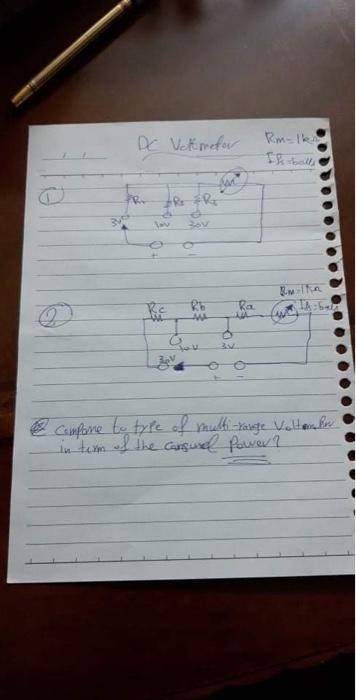 DC Voltmeter
Rm=1kΩ
①
R1
R2
R3
3V
10V
30V
+ -
Rm=1kΩ
②
Rc
Rb
Ra
10V
3V
30V
+ -
Compare to type of multi-range Voltmeter
in term of the consumed Power?